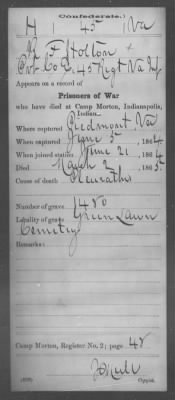 (Confederate.)
H 45 Va
F Holton
Pvt Co 45 Regt Va Inf.
Appears on a record of
Prisoners of War
who have died at Camp Morton, Indianapolis,
Indiana.
Where captured Piedmont, Va
When captured June 5, 1864
When joined station June 21, 1864
Died March 2, 1865
Cause of death
Number of grave 1480
Locality of grave Green Lawn
Cemetry
Remarks:
Camp Morton, Register No. 2; page 48
Copyist.